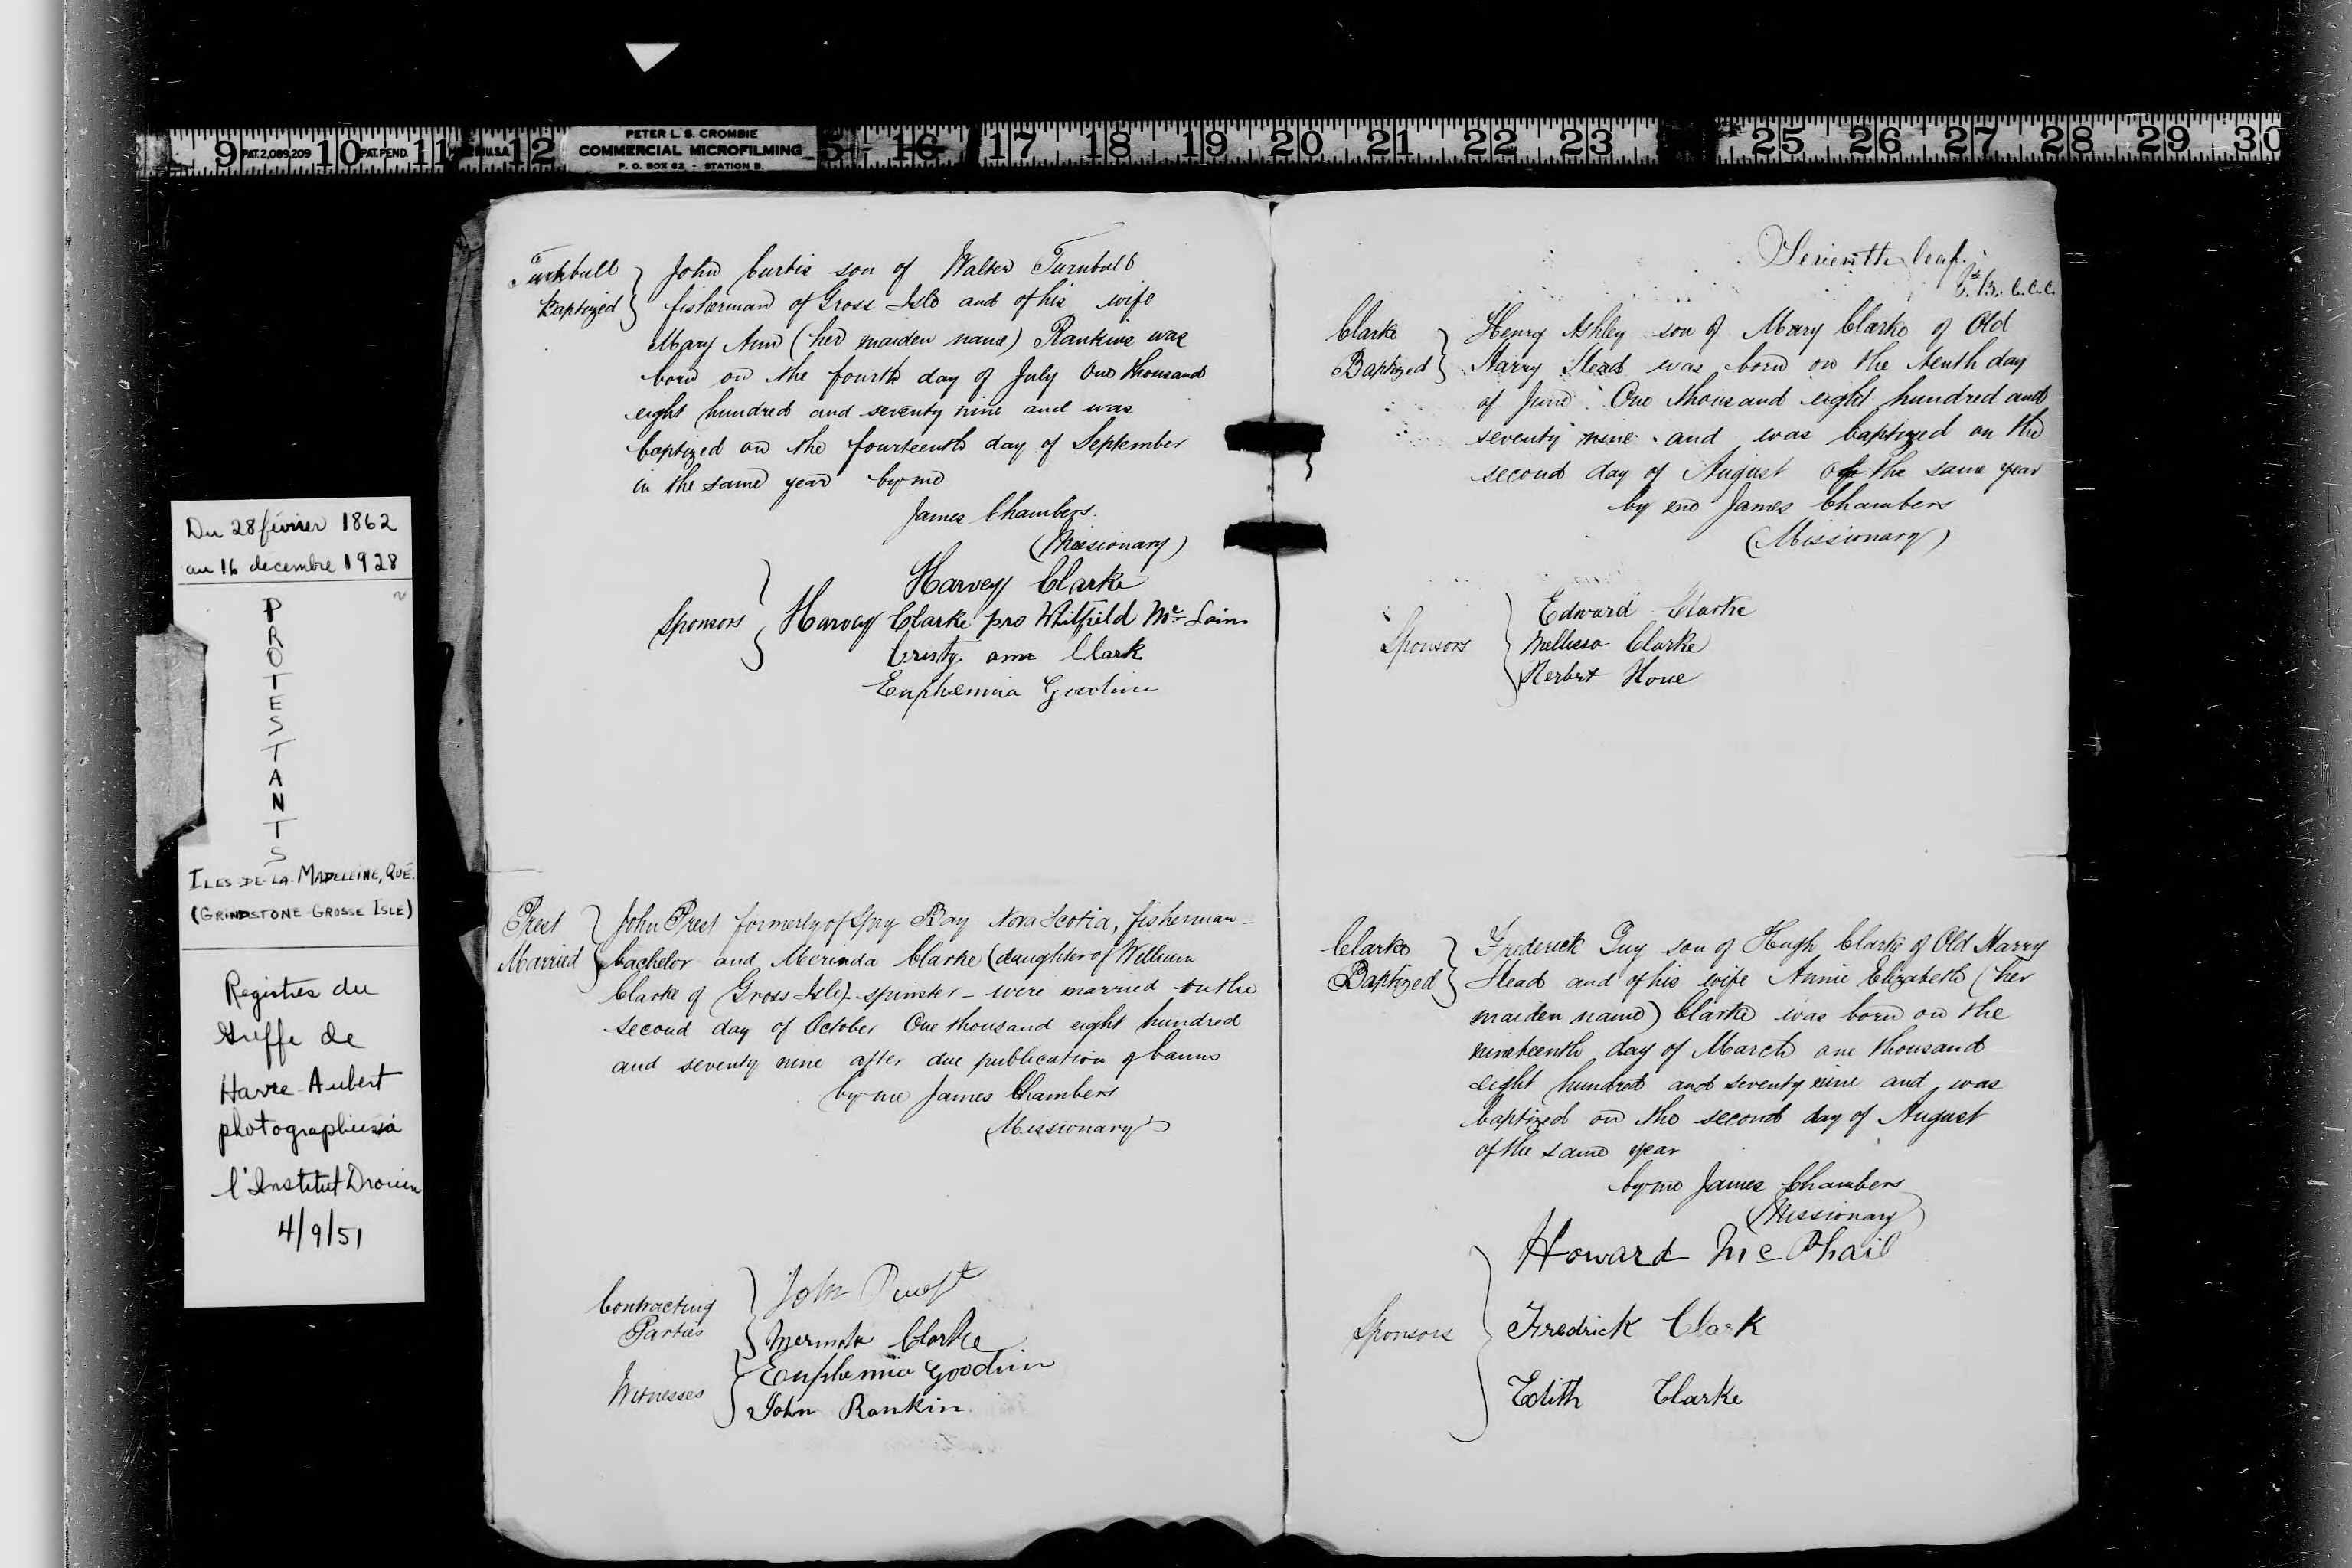 9 PAT. 2,089,209 10 PAT. PEND. 11 U.S.A. 12
PETER L. S. CROMBIE
COMMERCIAL MICROFILMING
P. O. BOX 62 - STATION B.
5 16 17 18 19 20 21 22 23 25 26 27 28 29 30
Du 28 février 1862
au 16 decembre 1928
PROTESTANTS
ILES-DE-LA-MADELEINE, QUÉ.
(GRINDSTONE-GROSSE ISLE)
Registres du
Greffe de
Havre-Aubert
photographiés à
l'Institut Drouin
4/9/51
Turnbull
Baptized
John Curtis son of Walter Turnbull
fisherman of Gross Isle and of his wife
Mary Ann (her maiden name) Rankine was
born on the fourth day of July One thousand
eight hundred and seventy nine and was
baptized on the fourteenth day of September
in the same year by me
James Chambers.
(Missionary)
Sponsors
Harvey Clarke
Harvey Clarke pro Whitfield Mc Lain
Cristy ann Clark
Euphemia Goodwin
Prest
Married
John Prest formerly of Spry Bay Nova Scotia, fisherman -
bachelor and Merinda Clarke (daughter of William
Clarke of Gross Isle) - spinster - were married on the
second day of October One thousand eight hundred
and seventy nine after due publication of banns
by me James Chambers
(Missionary)
Contracting
Parties
John Prest
Clarke
Witnesses
Euphemia Goodwin
John Rankin
Seventh leaf.
C.C.C.
Clarke
Baptized
Henry Ashley son of Mary Clarke of Old
Harry Head was born on the tenth day
of June One thousand eight hundred and
seventy nine and was baptized on the
second day of August of the same year
by me James Chambers
(Missionary)
Sponsors
Edward Clarke
Mellissa Clarke
Herbert
Clarke
Baptized
Frederick Guy son of Hugh Clarke of Old Harry
Head and of his wife Annie Elizabeth (her
maiden name) Clarke was born on the
nineteenth day of March one thousand
eight hundred and seventy nine and was
baptized on the second day of August
of the same year
by me James Chambers
(Missionary)
Sponsors
Howard McPhail
Fredrick Clark
Edith Clarke